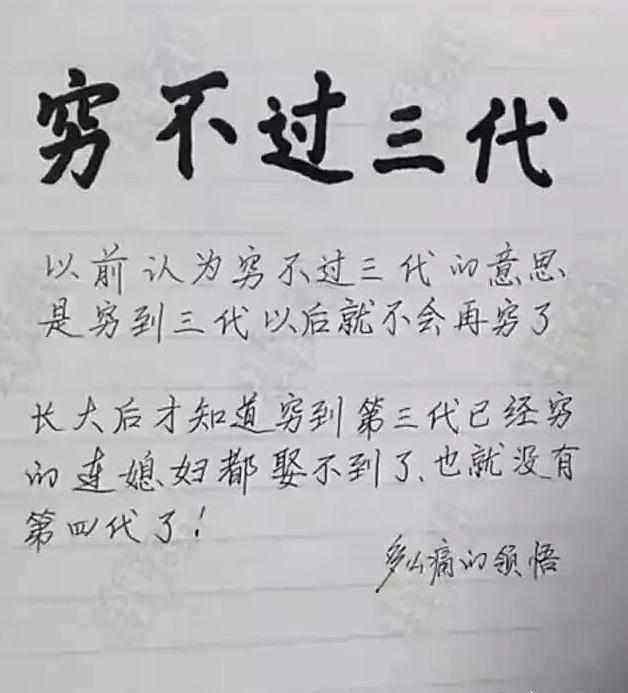 穷不过三代
以前认为穷不过三代的意思
是穷到三代以后就不会再穷了
长大后才知道穷到第三代已经穷
的连媳妇都娶不到了、也就没有
第四代了!
多么痛的领悟